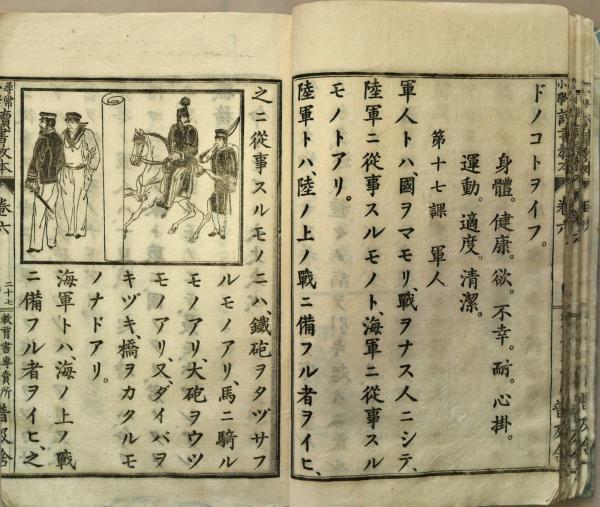 ドノコトヲイフ。
身體。健康。欲。不幸。耐。心掛。
運動。適度。清潔。
第十七課 軍人
軍人トハ、國ヲマモリ、戰ヲナス人ニシテ、
陸軍ニ從事スルモノト、海軍ニ從事スル
モノトアリ。
陸軍トハ、陸ノ上ノ戰ニ備フル者ヲイヒ、
之ニ從事スルモノニハ、鐵砲ヲタヅサフ
ルモノアリ、馬ニ騎ル
モノアリ、大砲ヲウツ
モノアリ、又、ダイバヲ
キヅキ、橋ヲカクルモ
ノナドアリ。
海軍トハ、海ノ上ノ戰
ニ備フル者ヲイヒ、之
尋常
讀書教本
卷六
二十七
教育書專賣所
普及舍